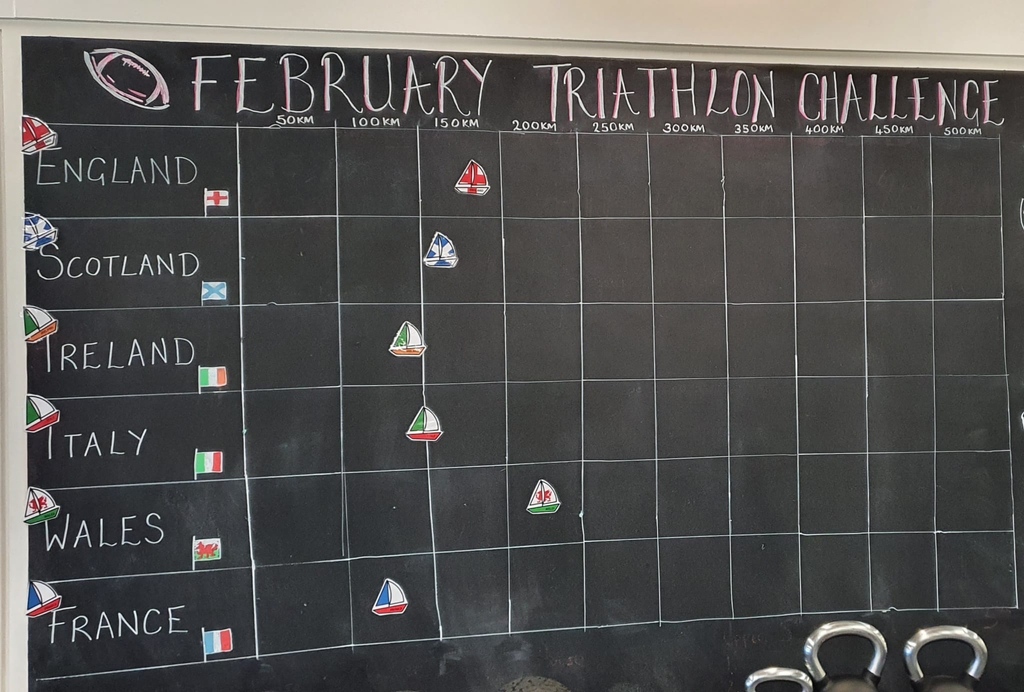 FEBRUARY TRIATHLON CHALLENGE
50KM 100KM 150KM 200KM 250KM 300KM 350KM 400KM 450KM 500KM
ENGLAND
SCOTLAND
IRELAND
ITALY
WALES
FRANCE